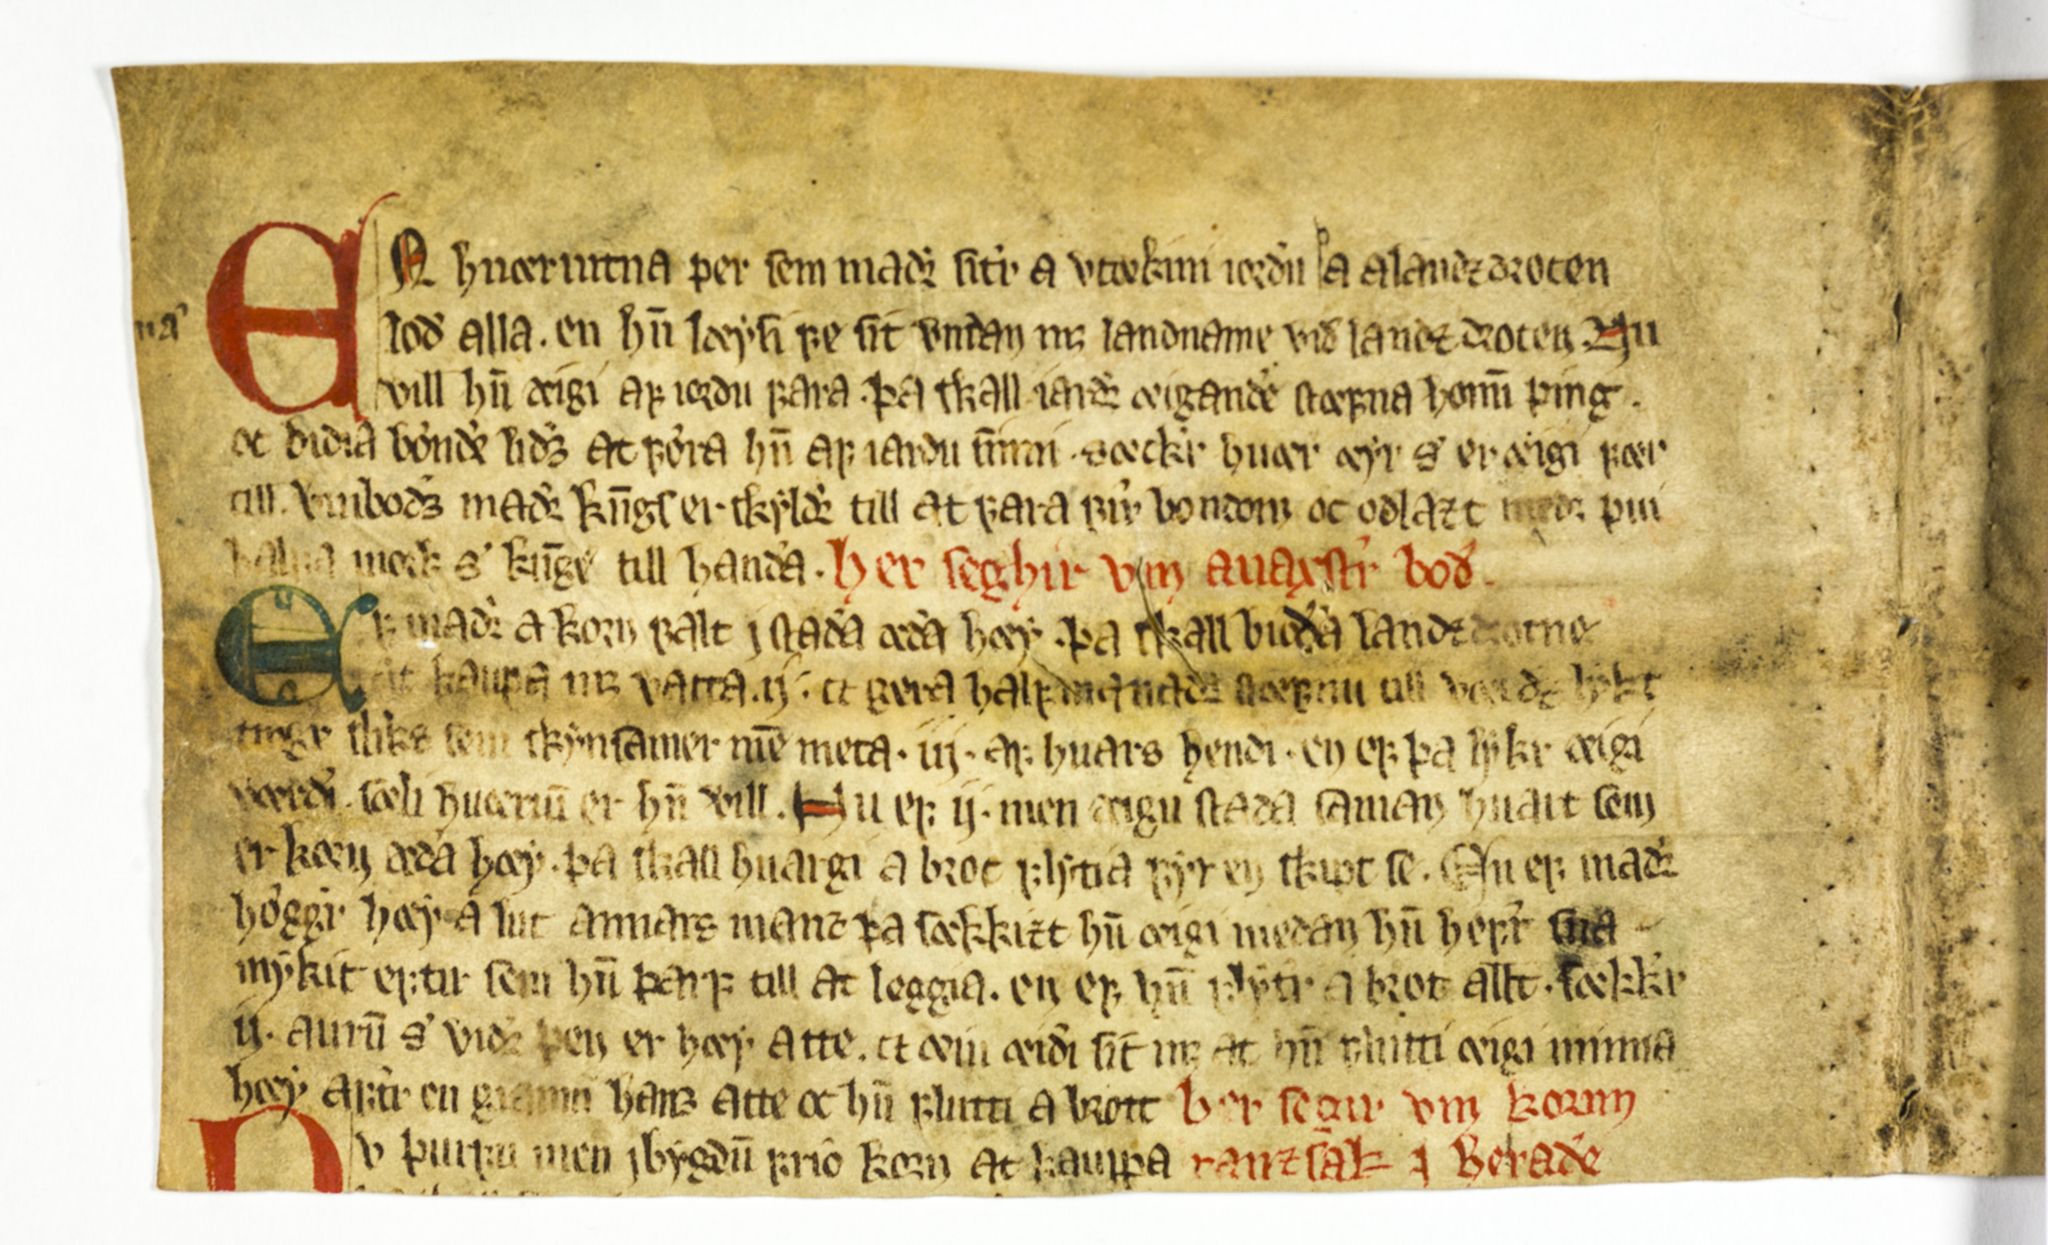 EN huæruitna þer sem madr sitr a vtækinni iordu þa a landzdroten
lod alla. en hn̄ læysi fe sit vndan mz landname vid landz droten. Nu
vill hn̄ æigi af iordu fara. þa skall iardr æigande stæfna honū þing.
oc bidia bønde lidz at føra hn̄ af iardu sinni. sæckr huær øyr s' er æigi fær
till. vmbodz madr kn̄gs er skyldr till at fara fir bondom oc odlazt medr þui
halua mork s' kn̄ge till handa. her seghir vm auaxstr bod.
Ef madr a korn falt j stada æda høy. þa skall biudda landzdrotne
sit kaupa mz vatta .ij. et gera halfmanadr stæfnu till værdz lykt
ingr sliks sem skynsamer mē meta. iij. af huars hendi. en ef þa lykr æigi
værdi. sæli huærium er hn̄ vill. Nu ef ij. men æigu stada saman huart sem
er korn æda høy. þa skall huargi a brot flytia fyr en skipt se. Nu ef madr
høggr høy a lut annars manz þa sækkizt hn̄ æigi medan hn̄ hefir sua
mykit eftir sem hn̄ þarf till at leggia. en ef hn̄ flytr a brot allt. sækkr
ij. aurū s' vidr þen er høy atte. et æin æidi sit mz at hn̄ flutti æigi minna
høy aftr en granni hans atte oc hn̄ flutti a brott her segir vm korn
Nv þurfu men j bygdū frio korn at kaupa ranzsak j herade